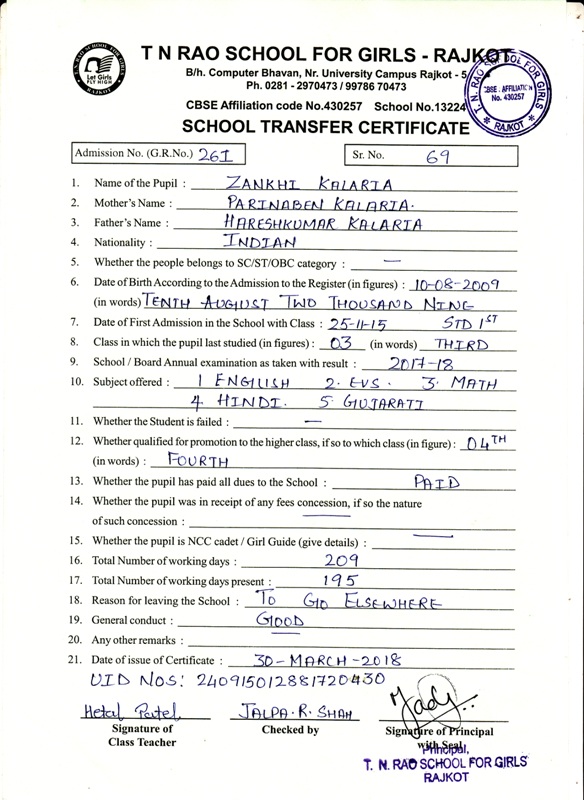 T. N. RAO SCHOOL FOR GIRLS
Let Girls
FLY HIGH
RAJKOT
T N RAO SCHOOL FOR GIRLS - RAJKOT
B/h. Computer Bhavan, Nr. University Campus Rajkot - 5
Ph. 0281 - 2970473 / 99786 70473
CBSE Affiliation code No.430257 School No.13224
T. N. RAO SCHOOL FOR GIRLS
CBSE AFFILIATION
No. 430257
* RAJKOT *
SCHOOL TRANSFER CERTIFICATE
Admission No. (G.R.No.) 261 Sr. No. 69
1. Name of the Pupil : ZANKHI KALARIA
2. Mother's Name : PARINABEN KALARIA.
3. Father's Name : HARESHKUMAR KALARIA
4. Nationality : INDIAN
5. Whether the people belongs to SC/ST/OBC category : —
6. Date of Birth According to the Admission to the Register (in figures) : 10-08-2009
(in words) TENTH AUGUST TWO THOUSAND NINE
7. Date of First Admission in the School with Class : 25-11-15 STD 1ST
8. Class in which the pupil last studied (in figures) : 03 (in words) THIRD
9. School / Board Annual examination as taken with result : 2017-18
10. Subject offered : 1 ENGLISH 2. EVS. 3. MATH
4. HINDI. 5. GUJARATI
11. Whether the Student is failed : —
12. Whether qualified for promotion to the higher class, if so to which class (in figure) : 04TH
(in words) : FOURTH
13. Whether the pupil has paid all dues to the School : PAID
14. Whether the pupil was in receipt of any fees concession, if so the nature
of such concession : —
15. Whether the pupil is NCC cadet / Girl Guide (give details) : —
16. Total Number of working days : 209
17. Total Number of working days present : 195
18. Reason for leaving the School : TO GO ELSEWHERE
19. General conduct : GOOD
20. Any other remarks : —
21. Date of issue of Certificate : 30-MARCH-2018
UID NOS: 240915012881720430
Hetal Patel JALPA.R.SHAH
Signature of Checked by Signature of Principal
Class Teacher with Seal
Principal,
T. N. RAO SCHOOL FOR GIRLS
RAJKOT